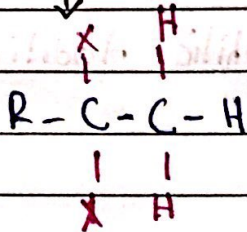 X H
R - C - C - H
X H